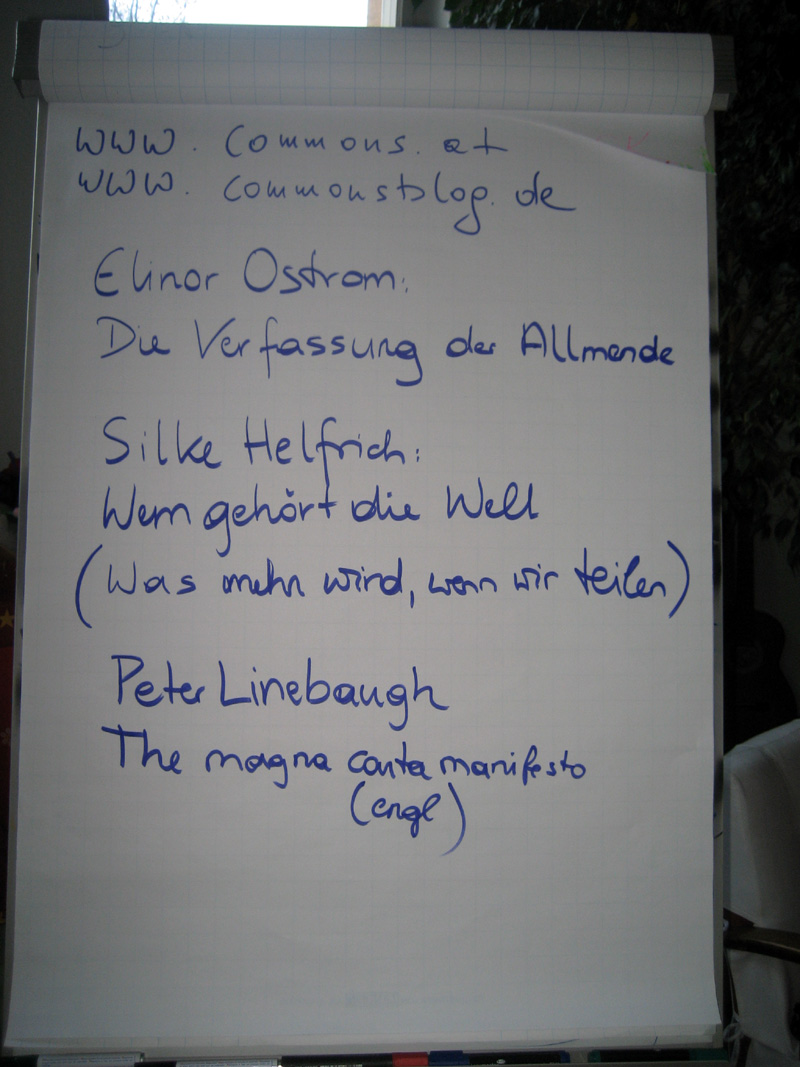 www.commons.at
www.commonsblog.de
Elinor Ostrom:
Die Verfassung der Allmende
Silke Helfrich:
Wem gehört die Welt
(Was mehr wird, wenn wir teilen)
Peter Linebaugh
The magna carta manifesto
(engl)